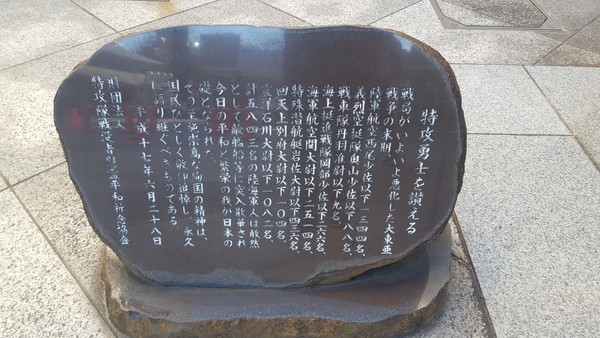 特攻勇士を讃える
戦局がいよいよ悪化した大東亜
戦争の末期、
陸軍航空西尾少佐以下一三四四名、
義烈空挺隊奥山少佐以下八八名、
戦車隊丹羽准尉以下九名、
海上挺進戦隊岡部少佐以下二六六名、
海軍航空関大尉以下二五一四名、
特殊潜航艇岩佐大尉以下四三六名、
回天上別府大尉以下一〇四名、
震洋石川大尉以下一〇八二名、
計五八四三名の陸海軍人は敢然
として敵艦船等に突入散華され
今日の平和と繁栄の我が日本の
礎となられた。
その至純崇高な殉国の精神は、
国民ひとしく敬仰追悼し、永久
に語り継ぐべきものである。
平成十七年六月二十八日
財団法人
特攻隊戦没者慰霊平和祈念協会